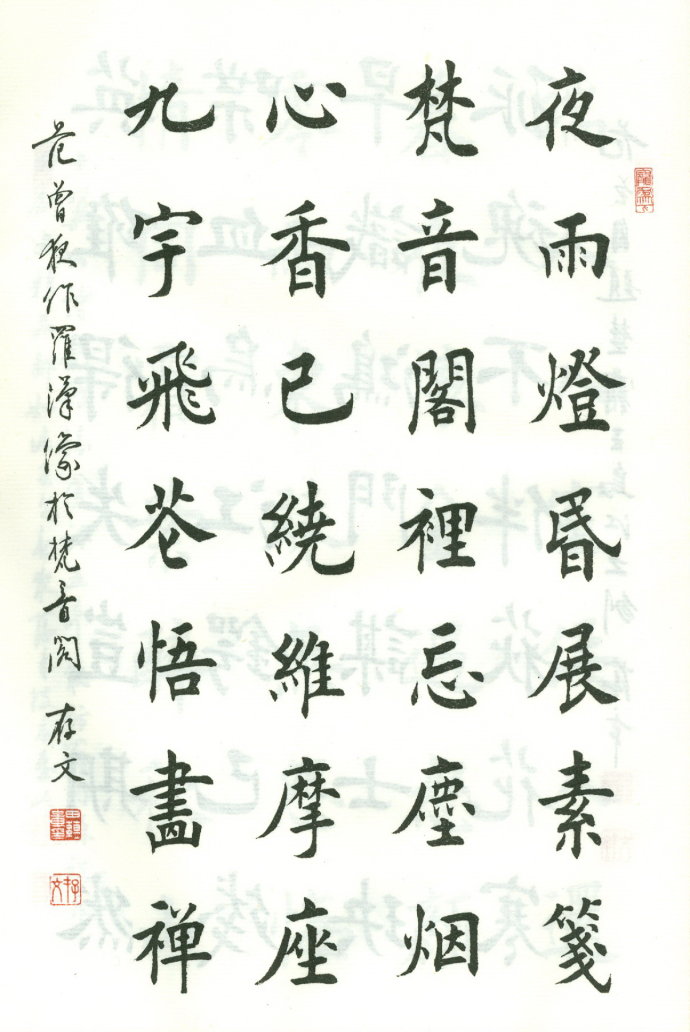 夜雨燈昏展素箋
梵音閣裡忘塵烟
心香已繞維摩座
九宇飛花悟畵禅
范曾夜作羅漢像於梵音閣 存文